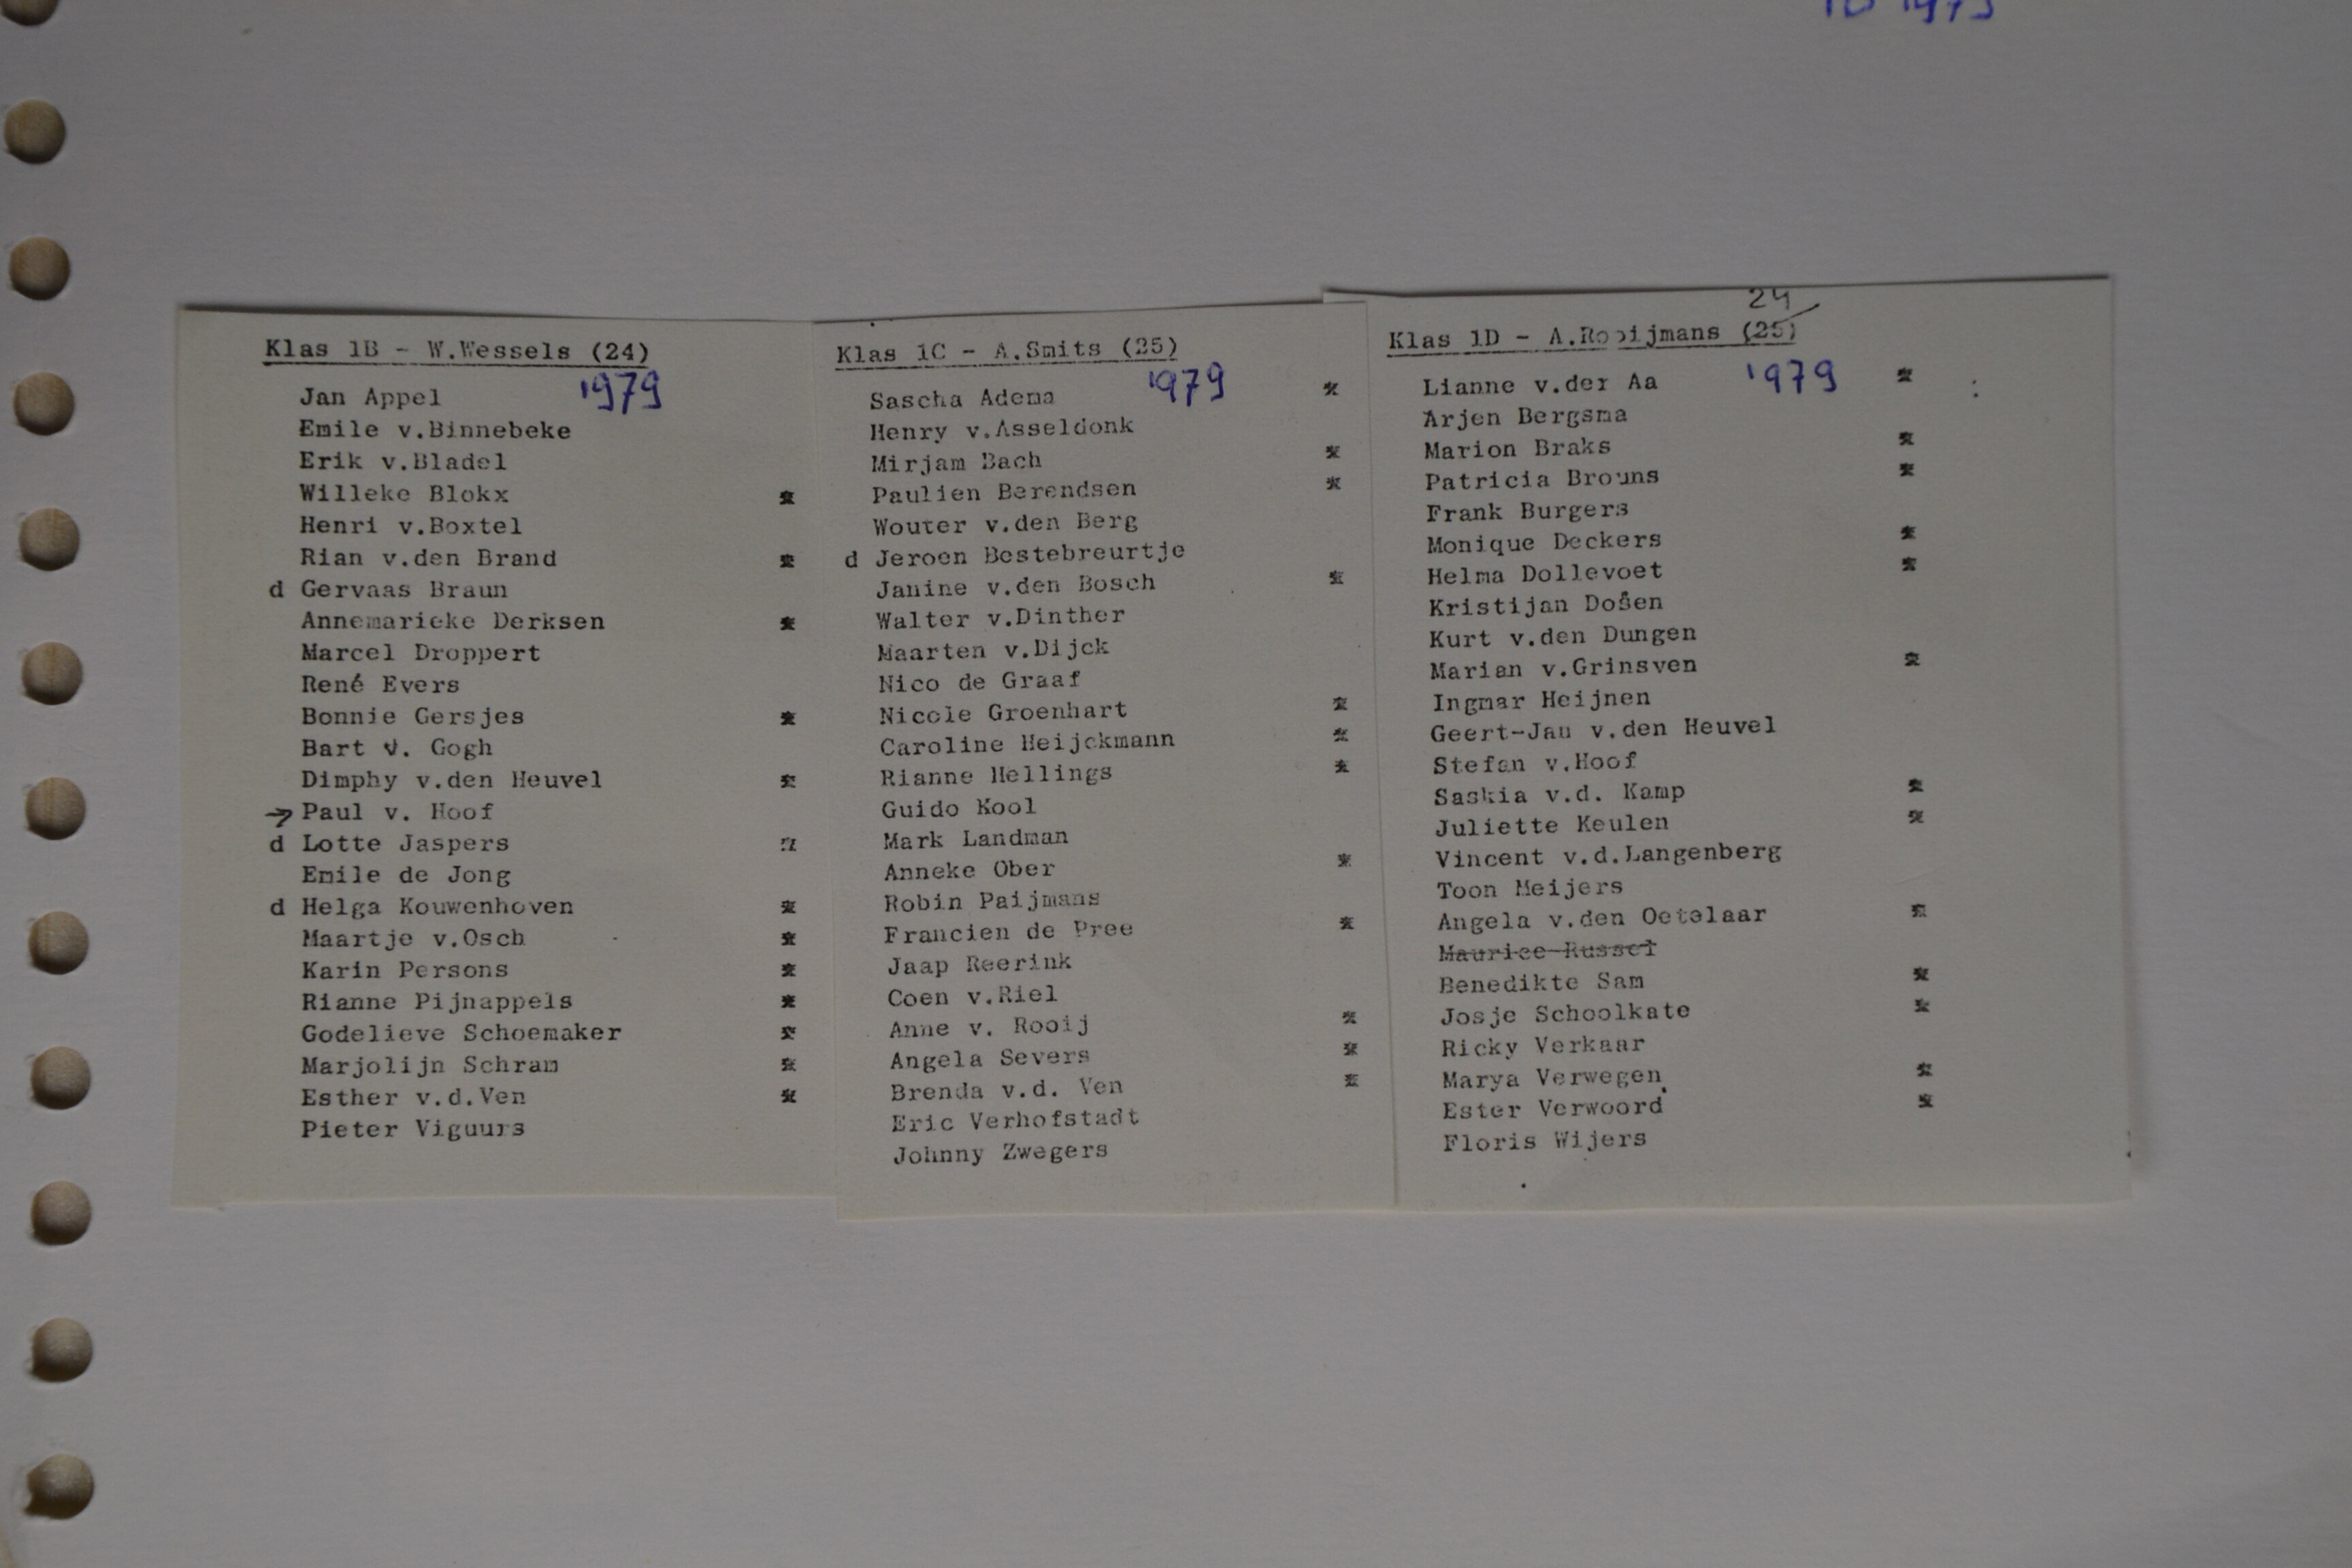 1D 1979
Klas 1B - W.Wessels (24)
1979
Jan Appel
Emile v.Binnebeke
Erik v.Bladel
Willeke Blokx *
Henri v.Boxtel
Rian v.den Brand *
d Gervaas Braun
Annemarieke Derksen *
Marcel Droppert
René Evers
Bonnie Gersjes *
Bart v. Gogh
Dimphy v.den Heuvel *
→ Paul v. Hoof
d Lotte Jaspers *
Emile de Jong
d Helga Kouwenhoven *
Maartje v.Osch *
Karin Persons *
Rianne Pijnappels *
Godelieve Schoemaker *
Marjolijn Schram *
Esther v.d.Ven *
Pieter Viguurs
Klas 1C - A.Smits (25)
1979
Sascha Adema *
Henry v.Asseldonk
Mirjam Bach *
Paulien Berendsen *
Wouter v.den Berg
d Jeroen Bestebreurtje
Janine v.den Bosch *
Walter v.Dinther
Maarten v.Dijck
Nico de Graaf
Nicole Groenhart *
Caroline Heijckmann *
Rianne Hellings *
Guido Kool
Mark Landman
Anneke Ober *
Robin Paijmans
Francien de Pree *
Jaap Reerink
Coen v.Riel
Anne v. Rooij *
Angela Severs *
Brenda v.d. Ven *
Eric Verhofstadt
Johnny Zwegers
24
Klas 1D - A.Rooijmans (25)
1979
Lianne v.der Aa *
Arjen Bergsma
Marion Braks *
Patricia Brouns *
Frank Burgers
Monique Deckers *
Helma Dollevoet *
Kristijan Došen
Kurt v.den Dungen
Marian v.Grinsven *
Ingmar Heijnen
Geert-Jan v.den Heuvel
Stefan v.Hoof
Saskia v.d. Kamp *
Juliette Keulen *
Vincent v.d.Langenberg
Toon Meijers
Angela v.den Oetelaar *
Maurice Russel
Benedikte Sam *
Josje Schoolkate *
Ricky Verkaar
Marya Verwegen *
Ester Verwoord *
Floris Wijers